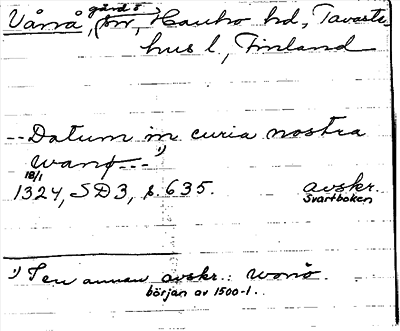 Vånå, gård o by, Hauho hd, Tavaste-
hus l, Finland
-- Datum in curia nostra
wanø---¹)
18/1
1324, SD3, s. 635. avskr.
Svartboken
¹) I en annan avskr.: wonö.
början av 1500-t.